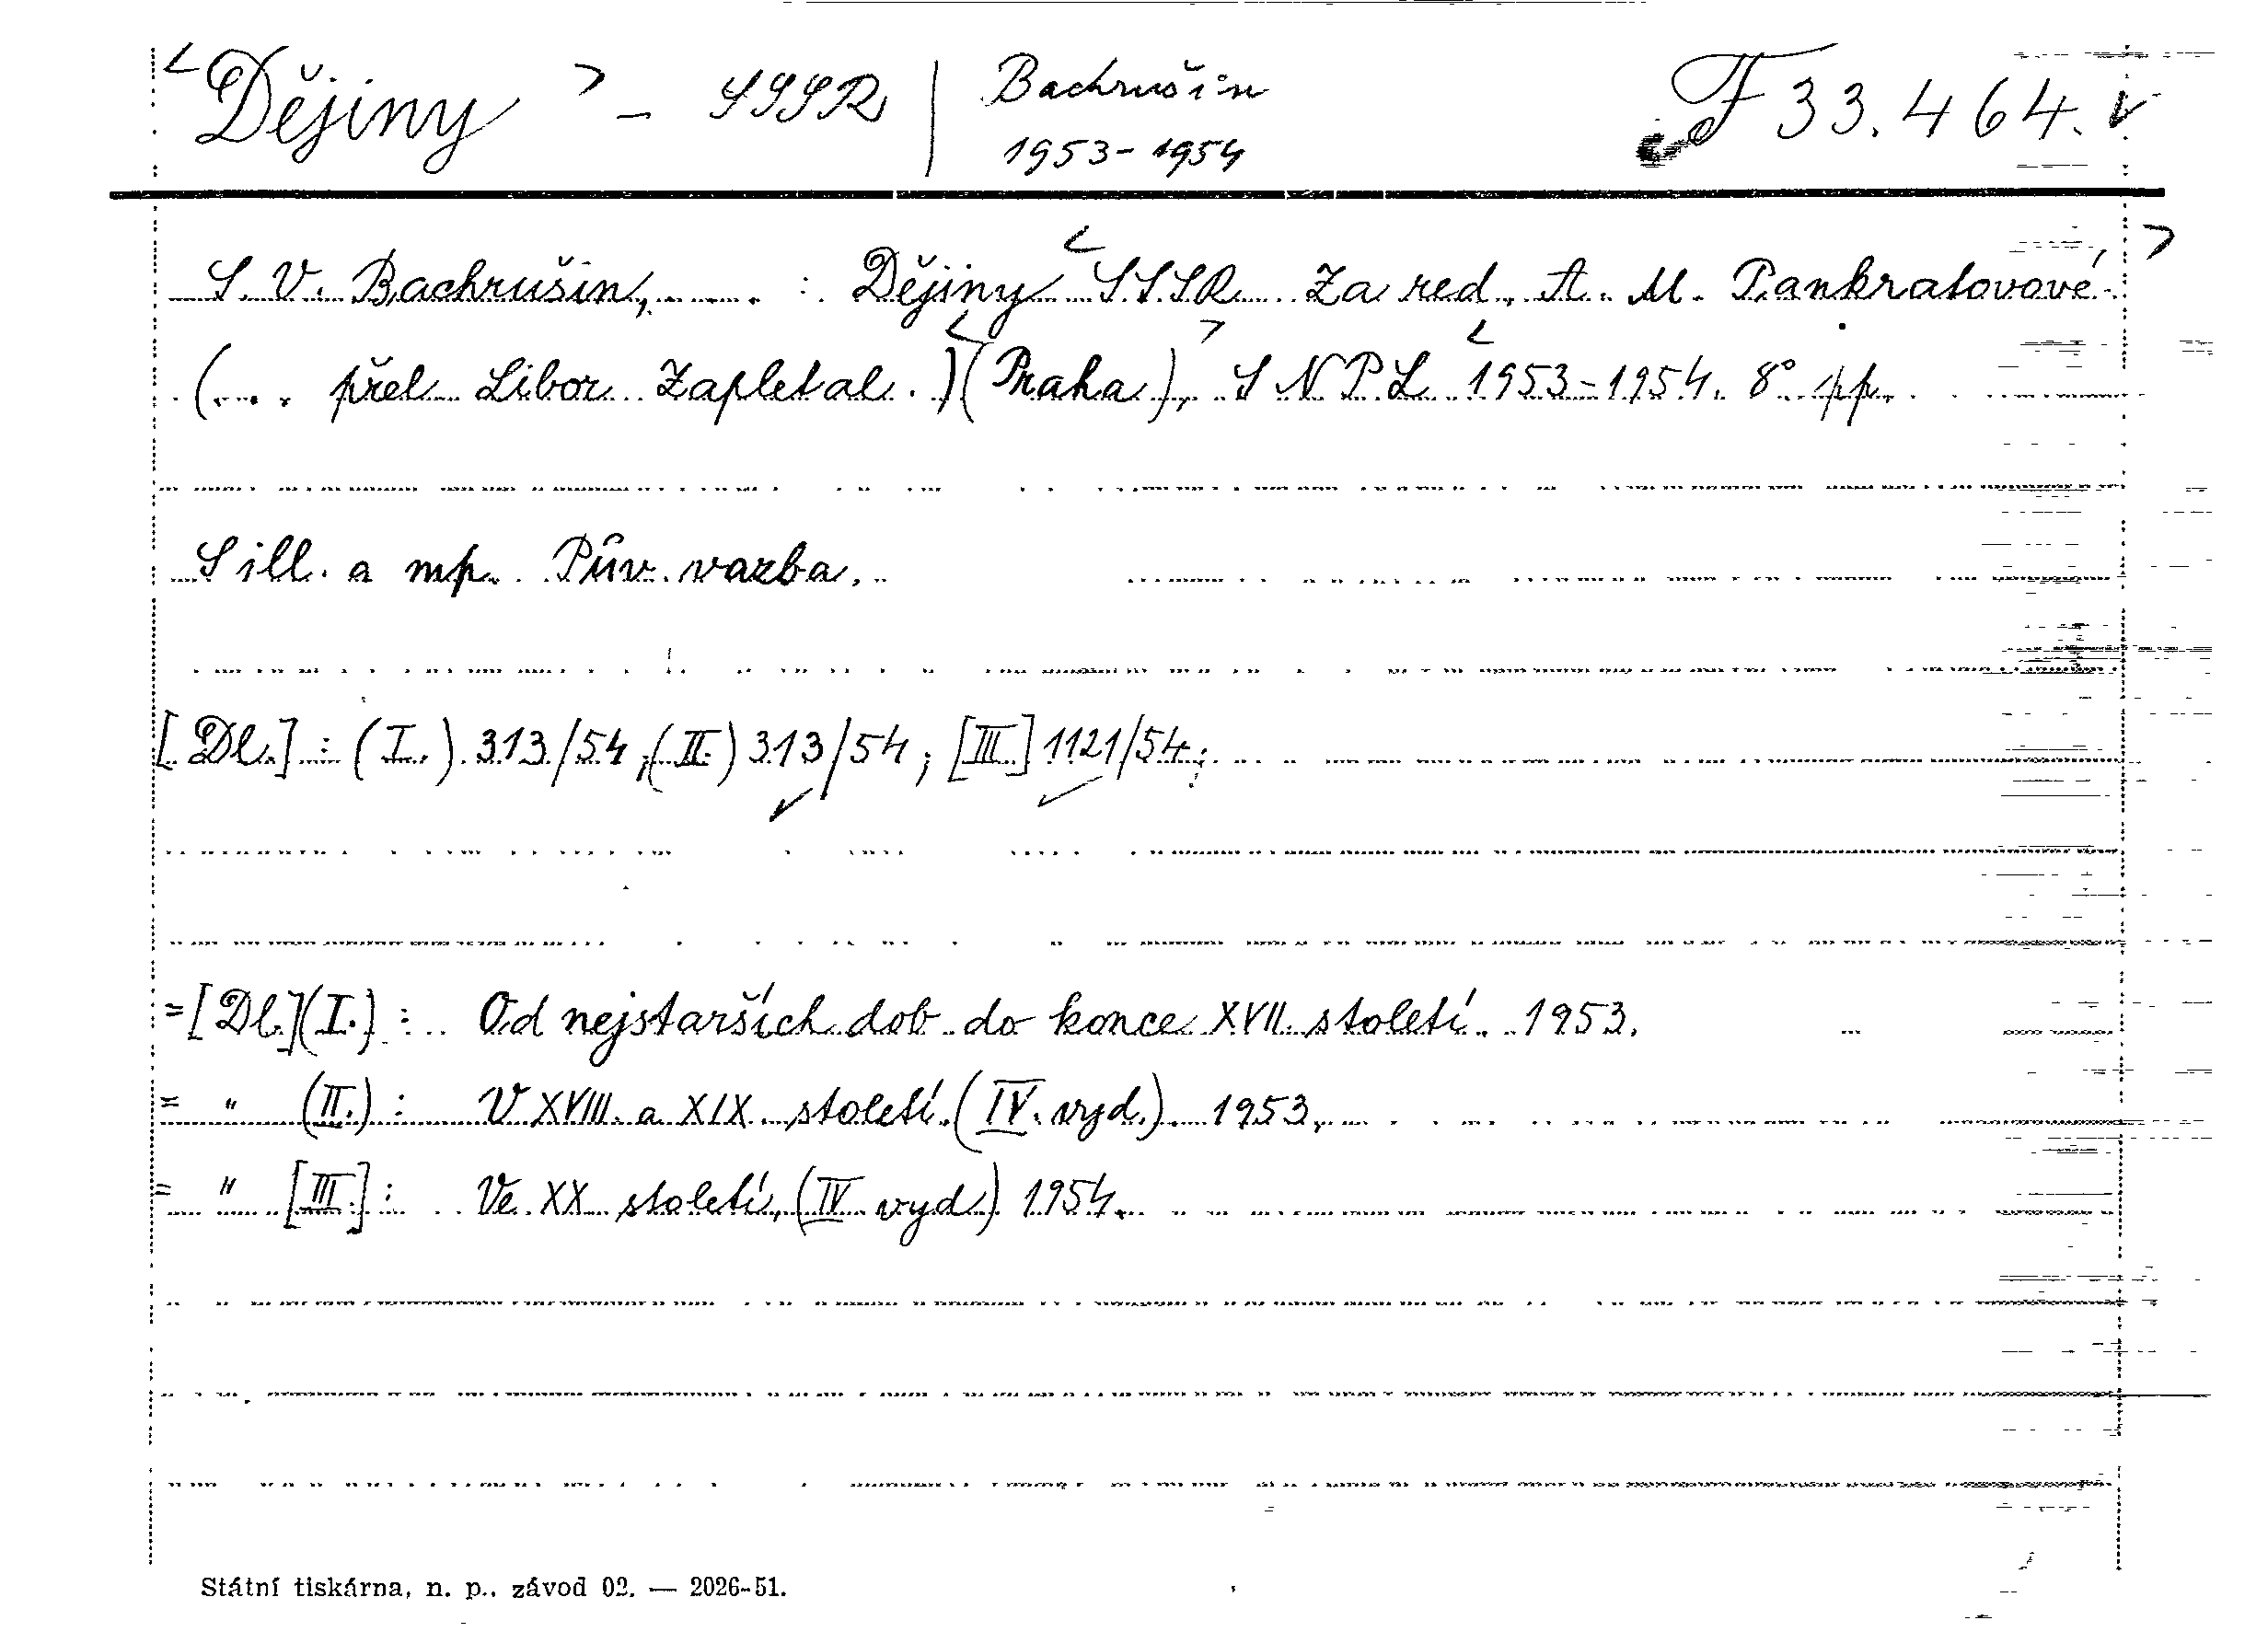 <Dějiny> - SSSR | Bachrušin F 33.464.
1953-1954
S. V. Bachrušin, ... : Dějiny <SSSR. Za red. A. M. Pankratovové>
(... přel. Libor Zapletal.) <(Praha)>, SNPL <1953-1954. 8° pp.
S ill. a mp. Pův. vazba.
[Dl.]: (I.) 313/54; (II.) 313/54; [III.] 1121/54;
=[Dl.](I.): Od nejstarších dob do konce XVII. století. 1953.
= " (II.): V XVIII. a XIX. století. (IV. vyd.). 1953.
= " [III.]: Ve XX. století, (IV vyd.) 1954.
Státní tiskárna, n. p., závod 02. — 2026-51.